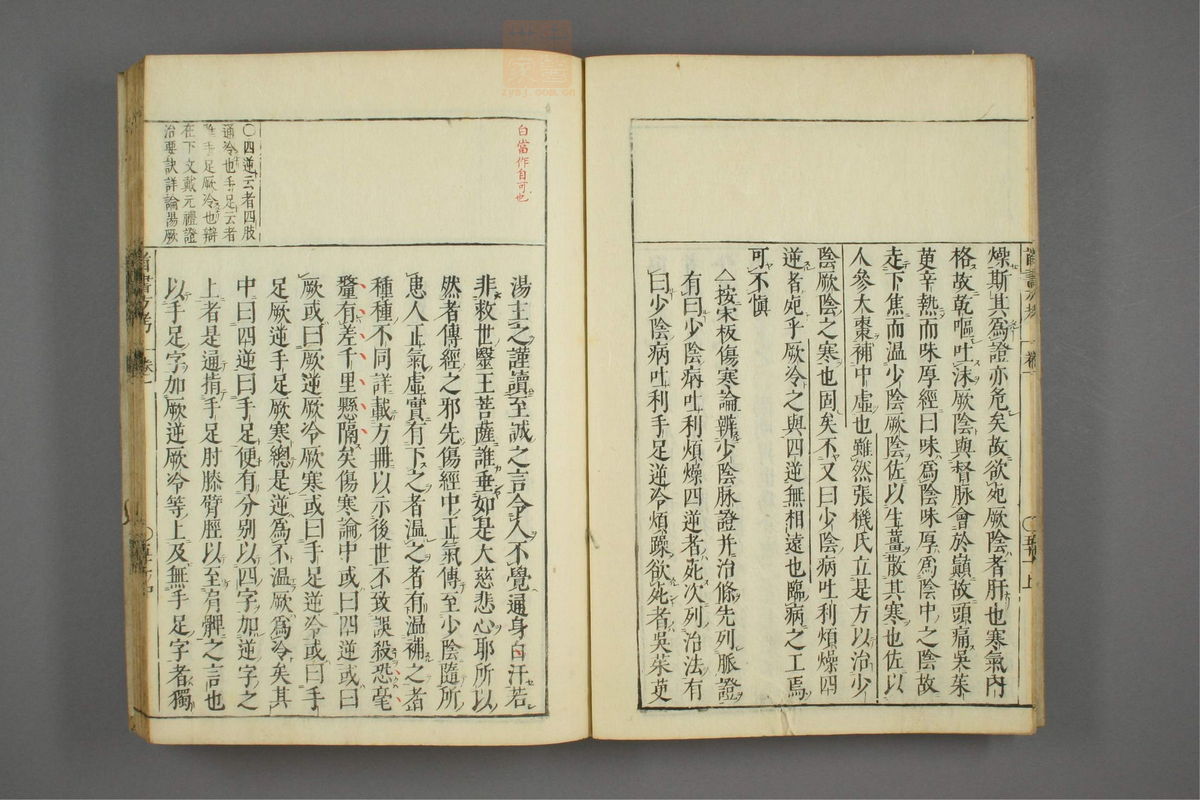 燥斯其為證亦危矣故欲死厥陰者肝也寒氣内
格故乾嘔吐沫厥陰與督脉會於巔故頭痛吳茱
萸辛熱而味厚經曰味為陰味厚為陰中之陰故
走下焦而温少陰厥陰佐以生薑散其寒也佐以
人參大棗補中虛也雖然張機氏立是方以治少
陰厥陰之寒也固矣不又曰少陰病吐利煩燥四
逆者死乎厥冷之與四逆無相遠也臨病之工焉
可不慎
△按宋板傷寒論辨少陰脉證并治條先列脈證
有曰少陰病吐利煩燥四逆者死次列治法有
曰少陰病吐利手足逆冷煩躁欲死者吳茱萸
白當作自可也
湯主之謹讀至誠之言令人不覺通身白汗若
非救世毉王菩薩誰垂如是大慈悲心耶所以
然者傳經之邪先傷經中正氣傳至少陰隨所
患人正氣虛實有下之者温之者有温補之者
種種不同詳載方冊以示後世不致誤殺恐毫
釐有差千里懸隔矣傷寒論中或曰四逆或曰
厥或曰厥逆厥冷厥寒或曰手足逆冷或曰手
足厥逆手足厥寒總是逆為不温厥為冷矣其
中曰四逆曰手足便有分别以四字加逆字之
上者是通指手足肘膝臂脛以至有髀之言也
以手足字加厥逆厥冷等上及無手足字者獨
〇四逆云者四肢
通冷也手足云者
唯手足厥冷也辯
在下文戴元禮證
治要訣詳論陽厥